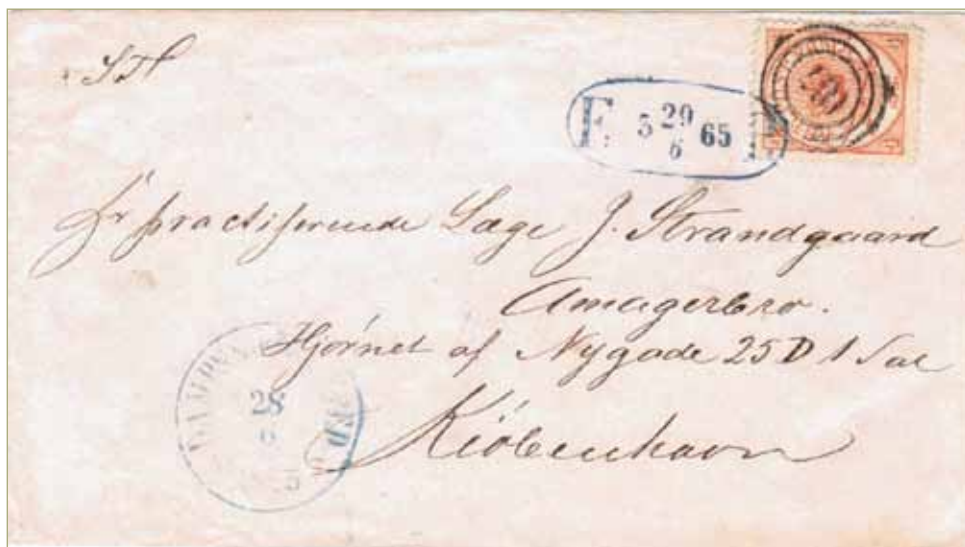 F: 3 29/6 65
Hr practiserende Læge J. Strandgaard
Amagerbro.
Hjørnet af Nygade 25 D 1 Sal
Kiöbenhavn
28